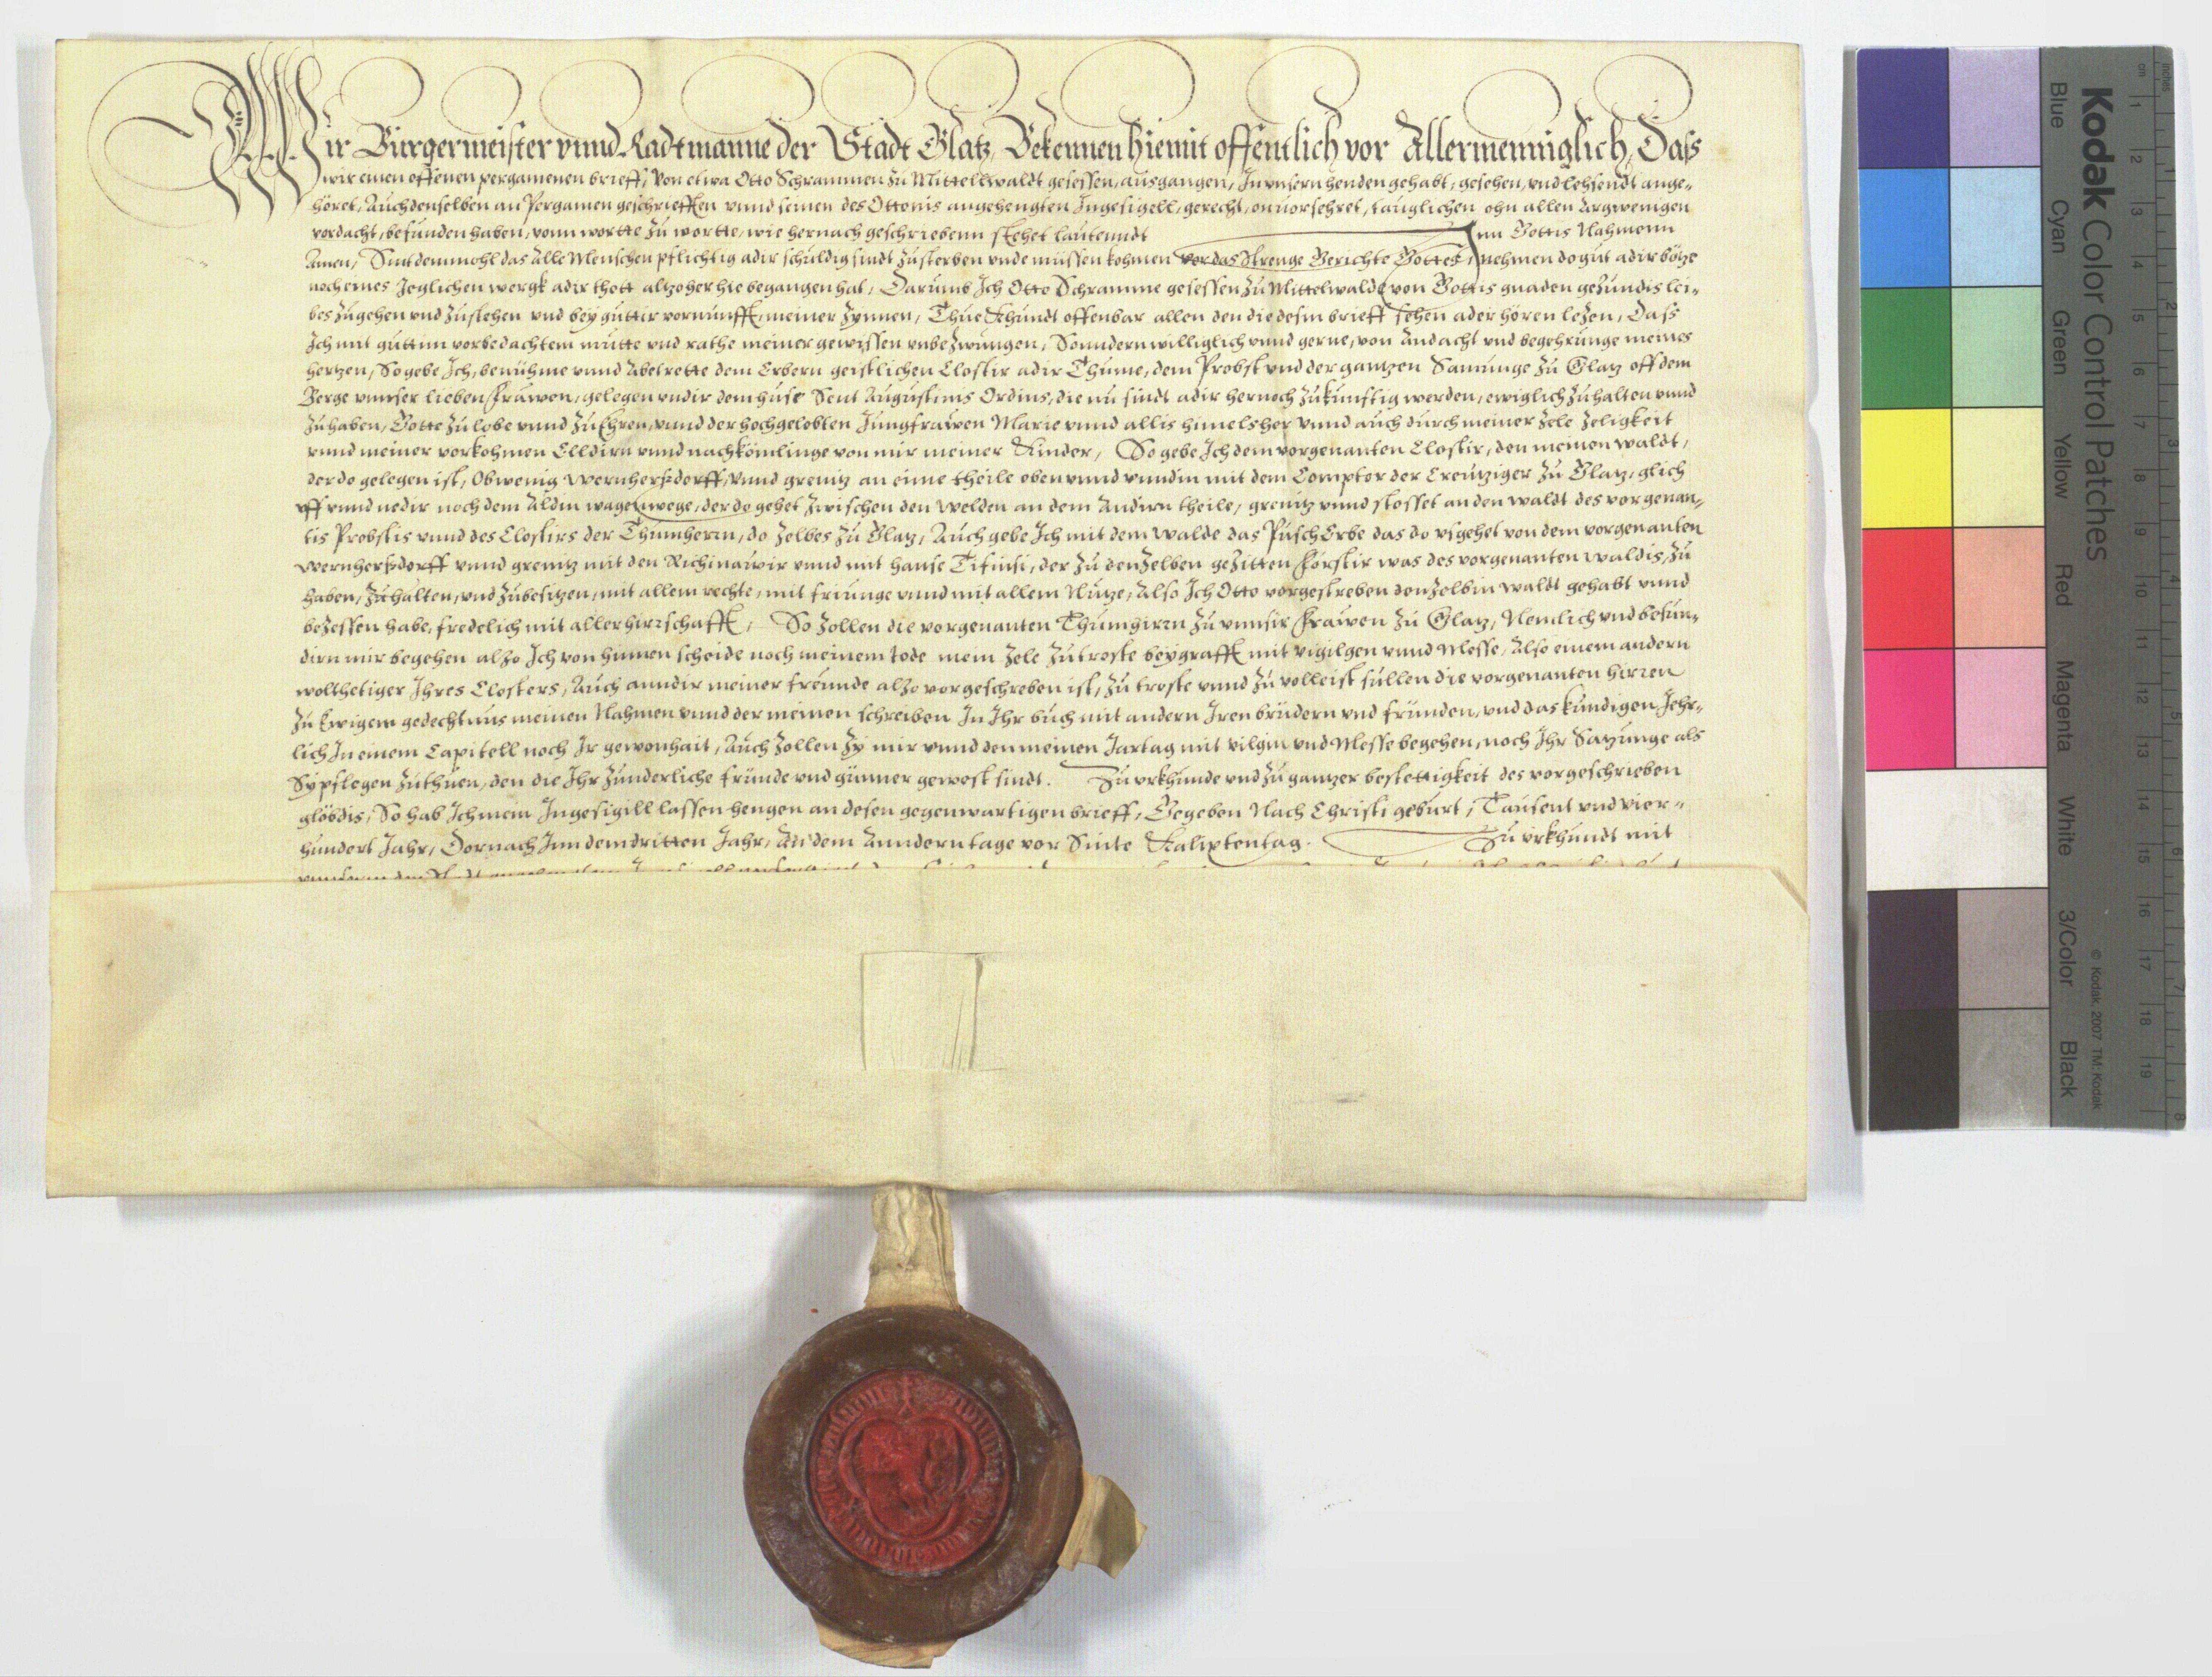 Wir Burgermeister vnnd Radtmanne der Stadt Glatz, Bekennen hiemit offentlich vor Allermenniglich, Daß
wir einen offenen pergamenen brieff, Von etwa Otto Schrammen zu Mittellwaldt gesessen, ausgangen, In vnsern henden gehabt, gesehen, vnd lehsendt ange-
höret, Auch denselben an Pergamen geschriefften vnnd seinen des Ottonis angehengten Ingesigell, gerecht, onuorsehret, tauglichen ohn allen Argwenigen
vordacht, befunden haben, vonn wortte zu wortte, wie hernach geschriebenn stehet lautenndt Inn Gottis Nahmenn
Amen, Sintdemmohl das Alle Menschen pflichtig adir schuldig sindt zu sterben vnde müssen kohmen vor das strenge Gerichte Gottes, nehmen do gut adir böze
noch eines Jeglichen wergk adir thott alzo her hie begangen hat, Darumb Ich Otto Schramme gesessen zu Mittelwalde von Gottis gnaden gesundis lei-
bes zu gehen vnd zu stehen vnd bey gutter vornunfft meiner zynnen, Thue Khundt offenbar allen den die desin brieff sehen ader hören lezen, Dass
Ich mit guttim vorbedachtem mutte vnd rathe meiner gewissen vnbezwungen, Sonndern williglich vnnd gerne, von Andacht vnd begehrunge meines
hertzen, So gebe Ich, benühme vnnd Abetrette dem Erbern geistlichen Clostir adir Thume, dem Probst vnd der gantzen Samunge zu Glatz off dem
Berge vnnser lieben Frawen, gelegen vndir dem huse Sent Augustinus Ordins, die nu sindt adir hernoch zukunftig werden, ewiglich zu halten vnnd
zu haben, Gotte zu lobe vnnd zu Ehren, vnnd der hochgelobten Jungfrawen Marie vnnd allis himelsher vnnd auch durch meiner zele zeligkeit
vnnd meiner vorkohmen Elldirn vnnd nachkömlinge von mir meiner Kinder, So gebe Ich dem vorgenanten Clostir, den meinen waldt,
der do gelegen ist, Obwenig Wernherßdorff, vnnd grenitz an eime theile oben vnnd vnndin mit dem Comptor der Creutziger zu Glatz, glich
vff vnnd nedir noch dem Aldin wagenwege, der do gehet zwischen den welden an dem Andirn theile, grenitz vnnd stosset an den waldt des vorgenan-
tis Probstis vnnd des Clostirs der Thumherrn, do zelbes zu Glatz, Auch gebe Ich mit dem walde das Pusch Erbe das do vsgehet von dem vorgenanten
Wernherßdorff vnnd grenitz mit den Richinawir vnnd mit hanse Tifinsi, der zu denzelben gezitten Forstir was des vorgenanten waldis, zu
haben, zu halten, vnd zu besitzen, mit allem rechte, mit friunge vnnd mit allem Nutze, Also Ich Otto vorgestreben denzelbin waldt gehabt vnnd
bezessen habe, fredelich mit aller hirrschafft, So zollen die vorgenanten Thumhirrn zu vnnsir Frawen zu Glatz, Nemlich vnd besun-
dirn mir begehen alzo Ich von hinnen scheide noch meinem tode mein zele zu troste beygrafft mit vigilgen vnnd Messe, Also einem andern
wolthetiger Ihres Closters, Auch anndir meiner freunde alzo vorgeschreben ist, zu troste vnnd zu volleist sullen die vorgenanten hirren
zu Ewigem gedechtnus meinen Nahmen vnnd der meinen schreiben In Ihr buch mit andern Iren brüdern vnd fründen, vnd das kundigen Jehr-
lich In einem Capitell noch Ir gewonhait, Auch zollen zy mir vnnd den meinen Jartag mit vilgin vnd Messe begehen, noch Ihr Satzunge als
Sy pflegen zu thuen, den die Ihr zunderliche fründe vnd günner gewest sindt. Zu vrkhunde vnd zu gantzer bestettigkeit des vorgeschrieben
glöbdis, So hab Ich mein Ingesigill lassen hengen an desen gegenwartigen brieff, Gegeben Nach Christi geburt, Tausent vnd vier-
hundert Jahr, Dornach Inn dem dritten Jahr, An dem Anndern tage vor Sinte Kalixtentag. Zu vrkhundt mit
Kodak Color Control Patches
© Kodak, 2007 TM: Kodak
Blue Cyan Green Yellow Red Magenta White 3/Color Black
cm 1 2 3 4 5 6 7 8 9 10 11 12 13 14 15 16 17 18 19
inches 1 2 3 4 5 6 7 8